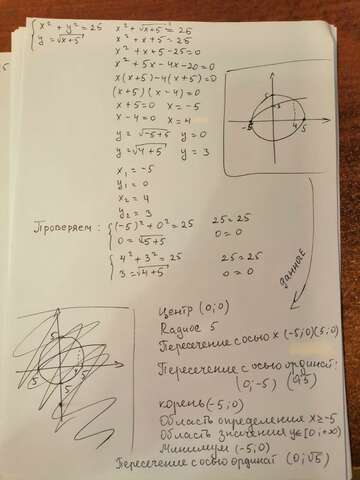 x² + y² = 25 x² + √x+5² = 25
y = √x+5 x² + x + 5 = 25
x² + x + 5 - 25 = 0
x² + 5x - 4x - 20 = 0
x(x+5) - 4(x+5) = 0
(x+5)(x-4) = 0
x + 5 = 0 x = -5
x - 4 = 0 x = 4
y = √-5+5 y = 0
y = √4+5 y = 3
x₁ = -5
y₁ = 0
x₂ = 4
y₂ = 3
Проверяем: (-5)² + 0² = 25 25 = 25
0 = √5+5 0 = 0
4² + 3² = 25 25 = 25
3 = √4+5 0 = 0
-5 4 5
данные
центр (0;0)
Радиус 5
Пересечение с осью x (-5;0)(5;0)
Пересечение с осью ординат:
(0;-5) (0;5)
корень (-5;0)
Область определения x ≥ -5
Область значения y ∈ [0;+∞)
Минимум (-5;0)
Пересечение с осью ординат (0;√5)
5 5
5